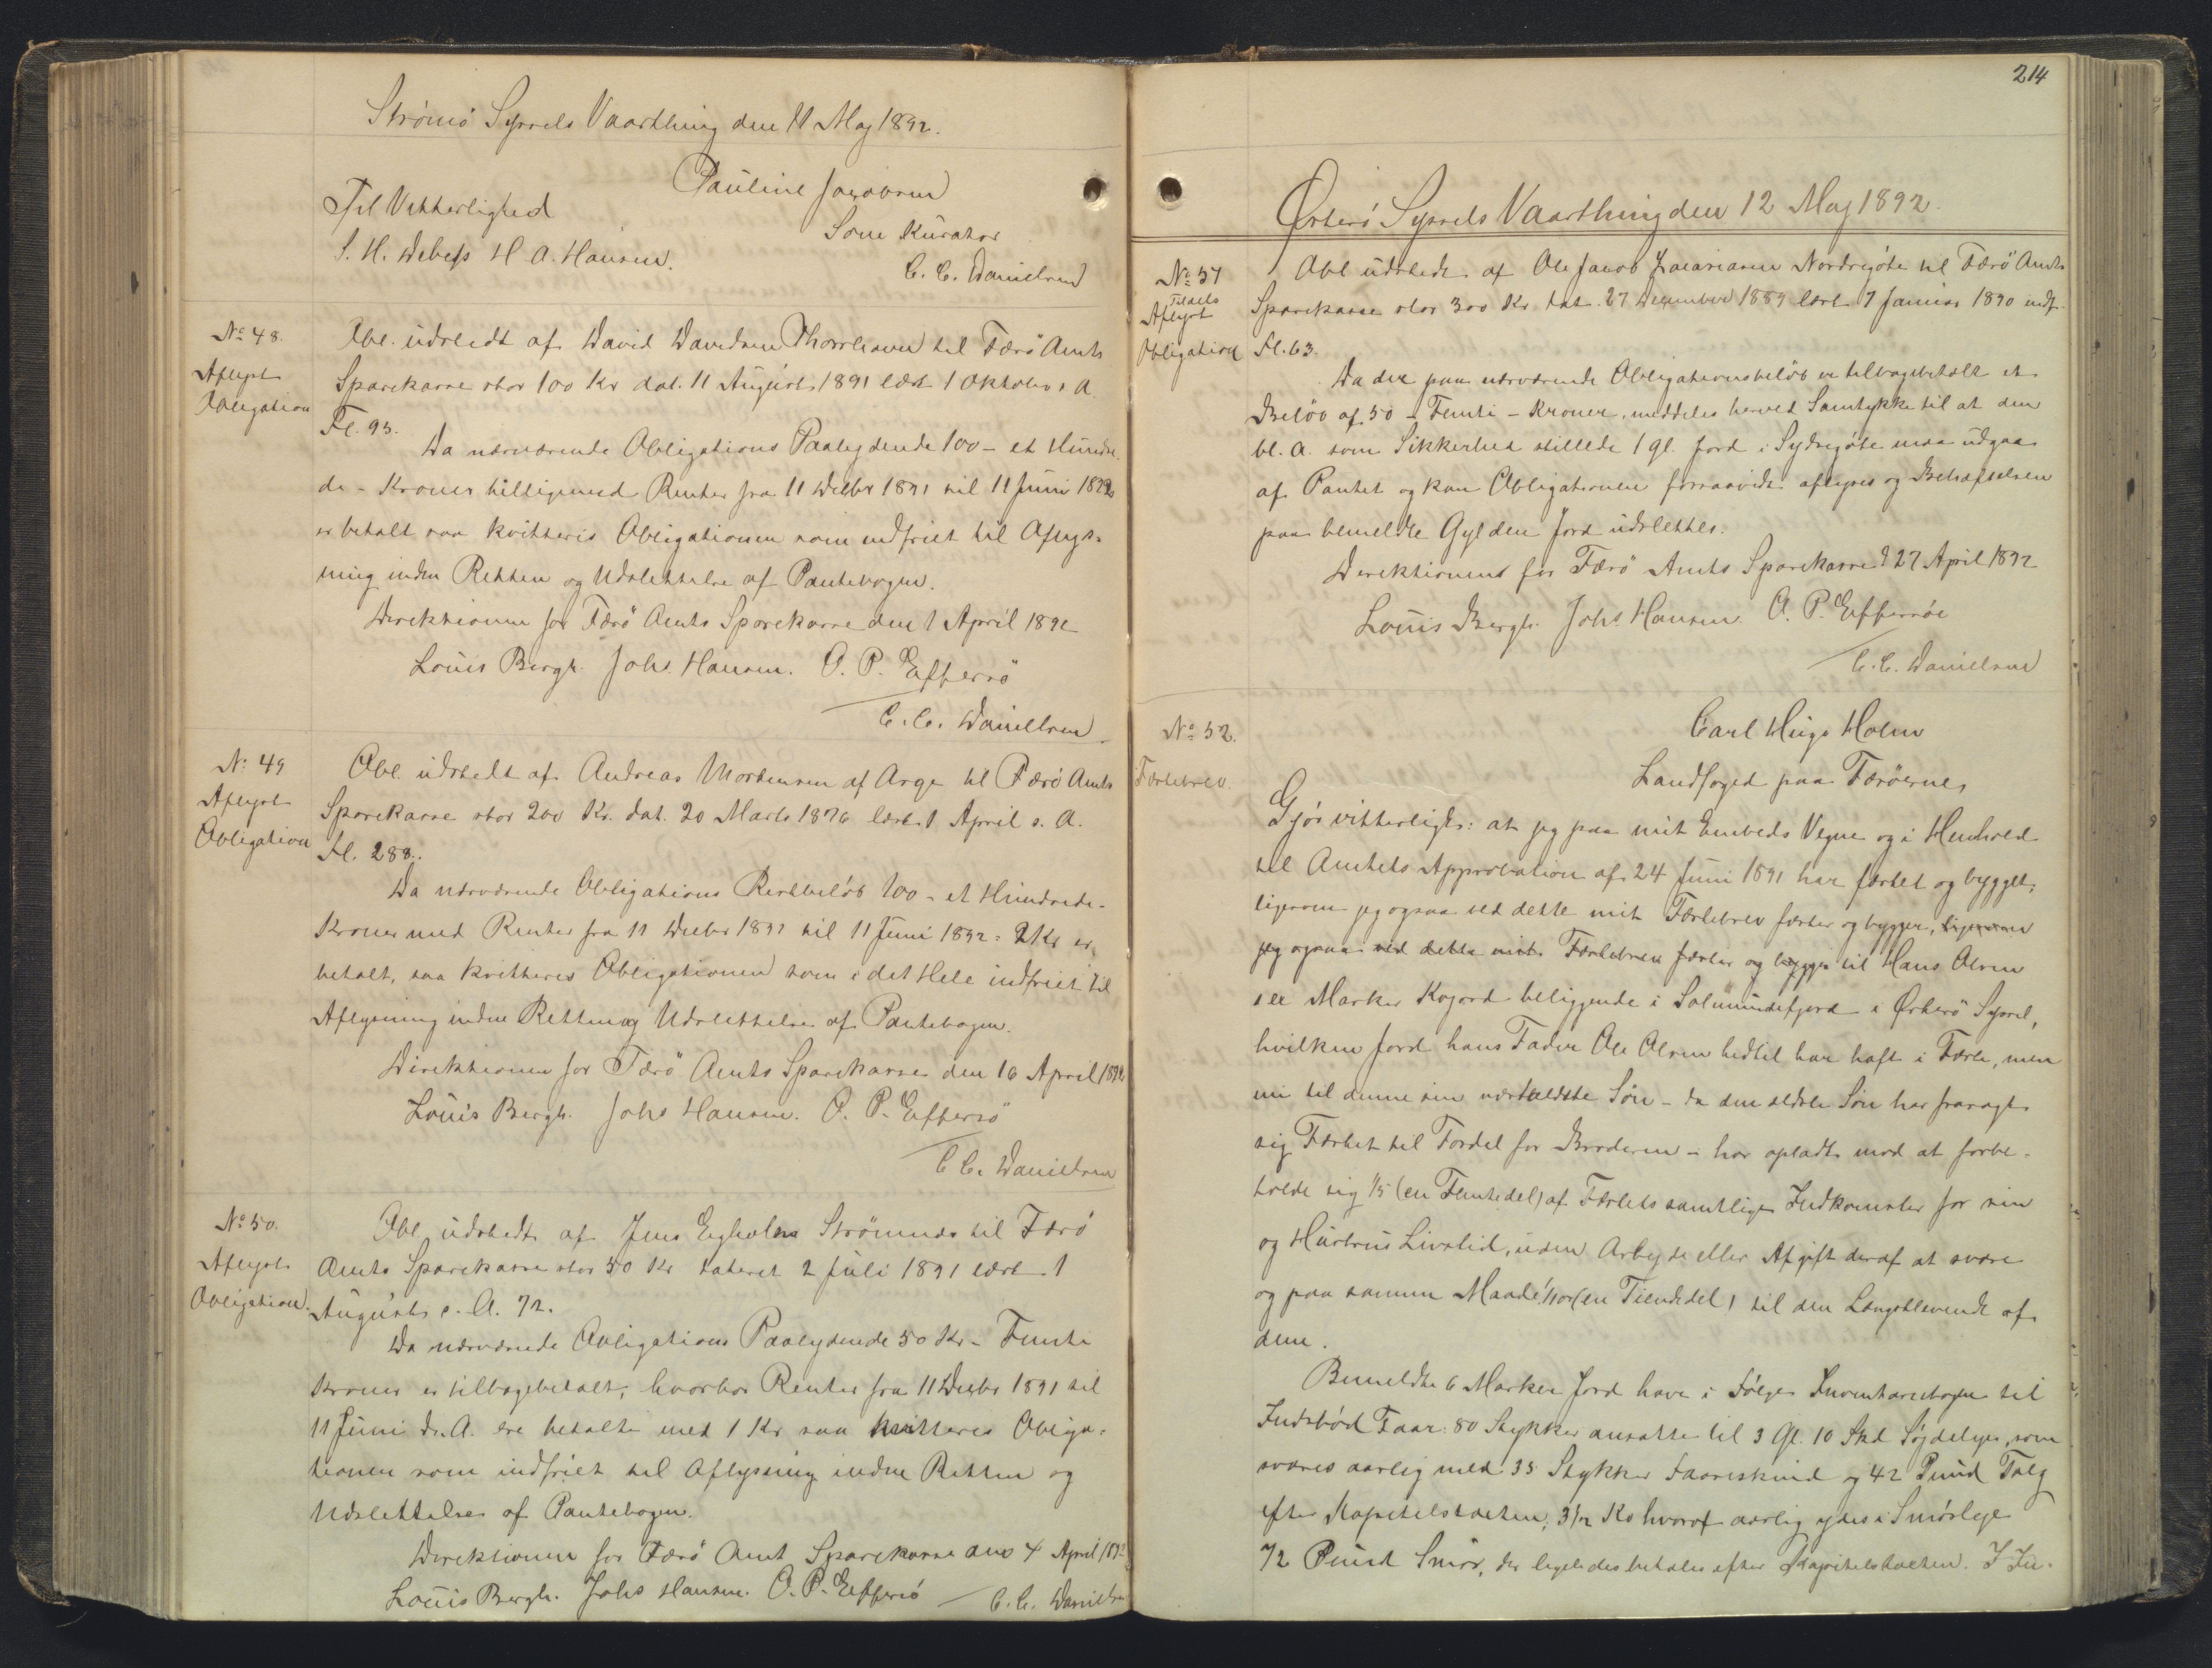 Strømø Syssels Vaarthing den 11 Maj 1892.
Pauline Jacobsen
Til Vitterlighed
Som Kurator
S. H. Debess H. A. Hansen.
C. C. Danielsen
No 48.
Aflyst
Obligation
Obl. udstedt af David Davidsen Thorshavn til Færö Amts
Sparekasse stor 100 Kr dat. 11 August 1891 læst 1 Oktober s. A.
Fl. 93.
Da nærværende Obligations Paalydende 100 - et Hundre
de - Kroner tilligemed Renter fra 11 Decbr 1891 til 11 Juni 1892
er betalt saa kvitteres Obligationen som indfriet til Aflys-
ning inden Retten og Udslettelse af Pantebogen.
Direktionen for Færö Amts Sparekasse den 1 April 1892
Louis Bergh. Johs. Hansen. O. P. Effersö
C. C. Danielsen
No 49
Aflyst
Obligation
Obl. udstedt af Andreas Mortensen af Arge til Færö Amts
Sparekasse stor 200 Kr. dat. 20 Marts 1876 læst 1 April s. A.
Fl. 288.
Da nærværende Obligations Restbeløb 100 - et Hundrede -
Kroner med Renter fra 11 Decbr 1891 til 11 Juni 1892 = 2 Kr er
betalt, saa kvitteres Obligationen som i det Hele indfriet til
Aflysning inden Retten og Udslettelse af Pantebogen.
Direktionen for Færö Amts Sparekasse den 16 April 1892
Louis Bergh. Johs Hansen. O. P. Effersö
C. C. Danielsen
No 50.
Aflyst
Obligation.
Obl. udstedt af Jens Egholm Strömnæs til Færö
Amts Sparekasse stor 50 Kr dateret 2 Juli 1891 læst 1
August s. A. 72.
Da nærværende Obligations Paalydende 50 Kr - Femti
Kroner er tilbagebetalt, hvorhos Renter fra 11 Decbr 1891 til
11 Juni d. A. ere betalte med 1 Kr saa kvitteres Obliga-
tionen som indfriet til Aflysning inden Retten og
Udslettelse af Pantebogen.
Direktionen for Færö Amt Sparekasse den 4 April 1892
Louis Bergh. Johs Hansen. O. P. Effersö
C. C. Danielsen
214
Østerö Syssels Vaarthing den 12 Maj 1892.
No 51
Tildels
Aflyst
Obligation
Obl udstedt af Ole Jacob Zacariasen Nordregöte til Færö Amts
Sparekasse stor 300 Kr dat. 27 December 1889 læst 1 Januar 1890 indf.
Fl. 63.
Da der paa nærværende Obligationsbeløb er tilbagebetalt et
Beløb af 50 - Femti - Kroner, meddeles herved Samtykke til at den
bl. A. som Sikkerhed stillede 1 gl. Jord i Sydregöte maa udgaa
af Pantet og kan Obligationen forsaavidt aflyses og Behæftelsen
paa bemeldte Gylden Jord udslettes.
Direktionens for Færö Amts Sparekasse d 27 April 1892
Louis Bergh. Johs Hansen. O. P. Effersöe
C. C. Danielsen
No 52.
Fæstebrev.
Carl Hugo Holm
Landfoged paa Færöerne,
Gjør vitterligt: at jeg paa mit Embeds Vegne og i Henhold
til Amtets Approbation af 24 Juni 1891 har fæstet og bygget,
ligesom jeg ogsaa ved dette mit Fæstebrev fæster og bygger, ligesom
jeg ogsaa ved dette mit Fæstebrev fæster og bygger til Hans Olsen
Marker Kogsjord beliggende i Salmundefjord i Østerö Syssel,
hvilken Jord hans Fader Ole Olsen hidtil har haft i Fæste, men
nu til denne sin næstældste Søn - da den ældste Søn har frasagt
sig Fæstet til Fordel for Broderen - har opladt mod at forbe-
holde sig 1/5 (en Femtedel) af Fæstets samtlige Indkomster for sin
og Hustrus Livstid, uden Arbejde eller Afgift deraf at svare
og paa samme Maade 1/10 (en Tiendedel) til den Længstlevende af
dem.
Bemeldte 6 Marker Jord have i Følge Inventariebogen til
Indstöd Faar: 80 Stykker ansatte til 3 Gl. 10 Skd som
svares aarlig med 35 Stykker Faareskind og 42 Pund Talg
efter Kapitelstaxten, 3 1/2 Ko hvoraf aarlig ydes i Smörleje
72 Pund Smör, der ligeledes betales efter Kapitelstaxten. I In-